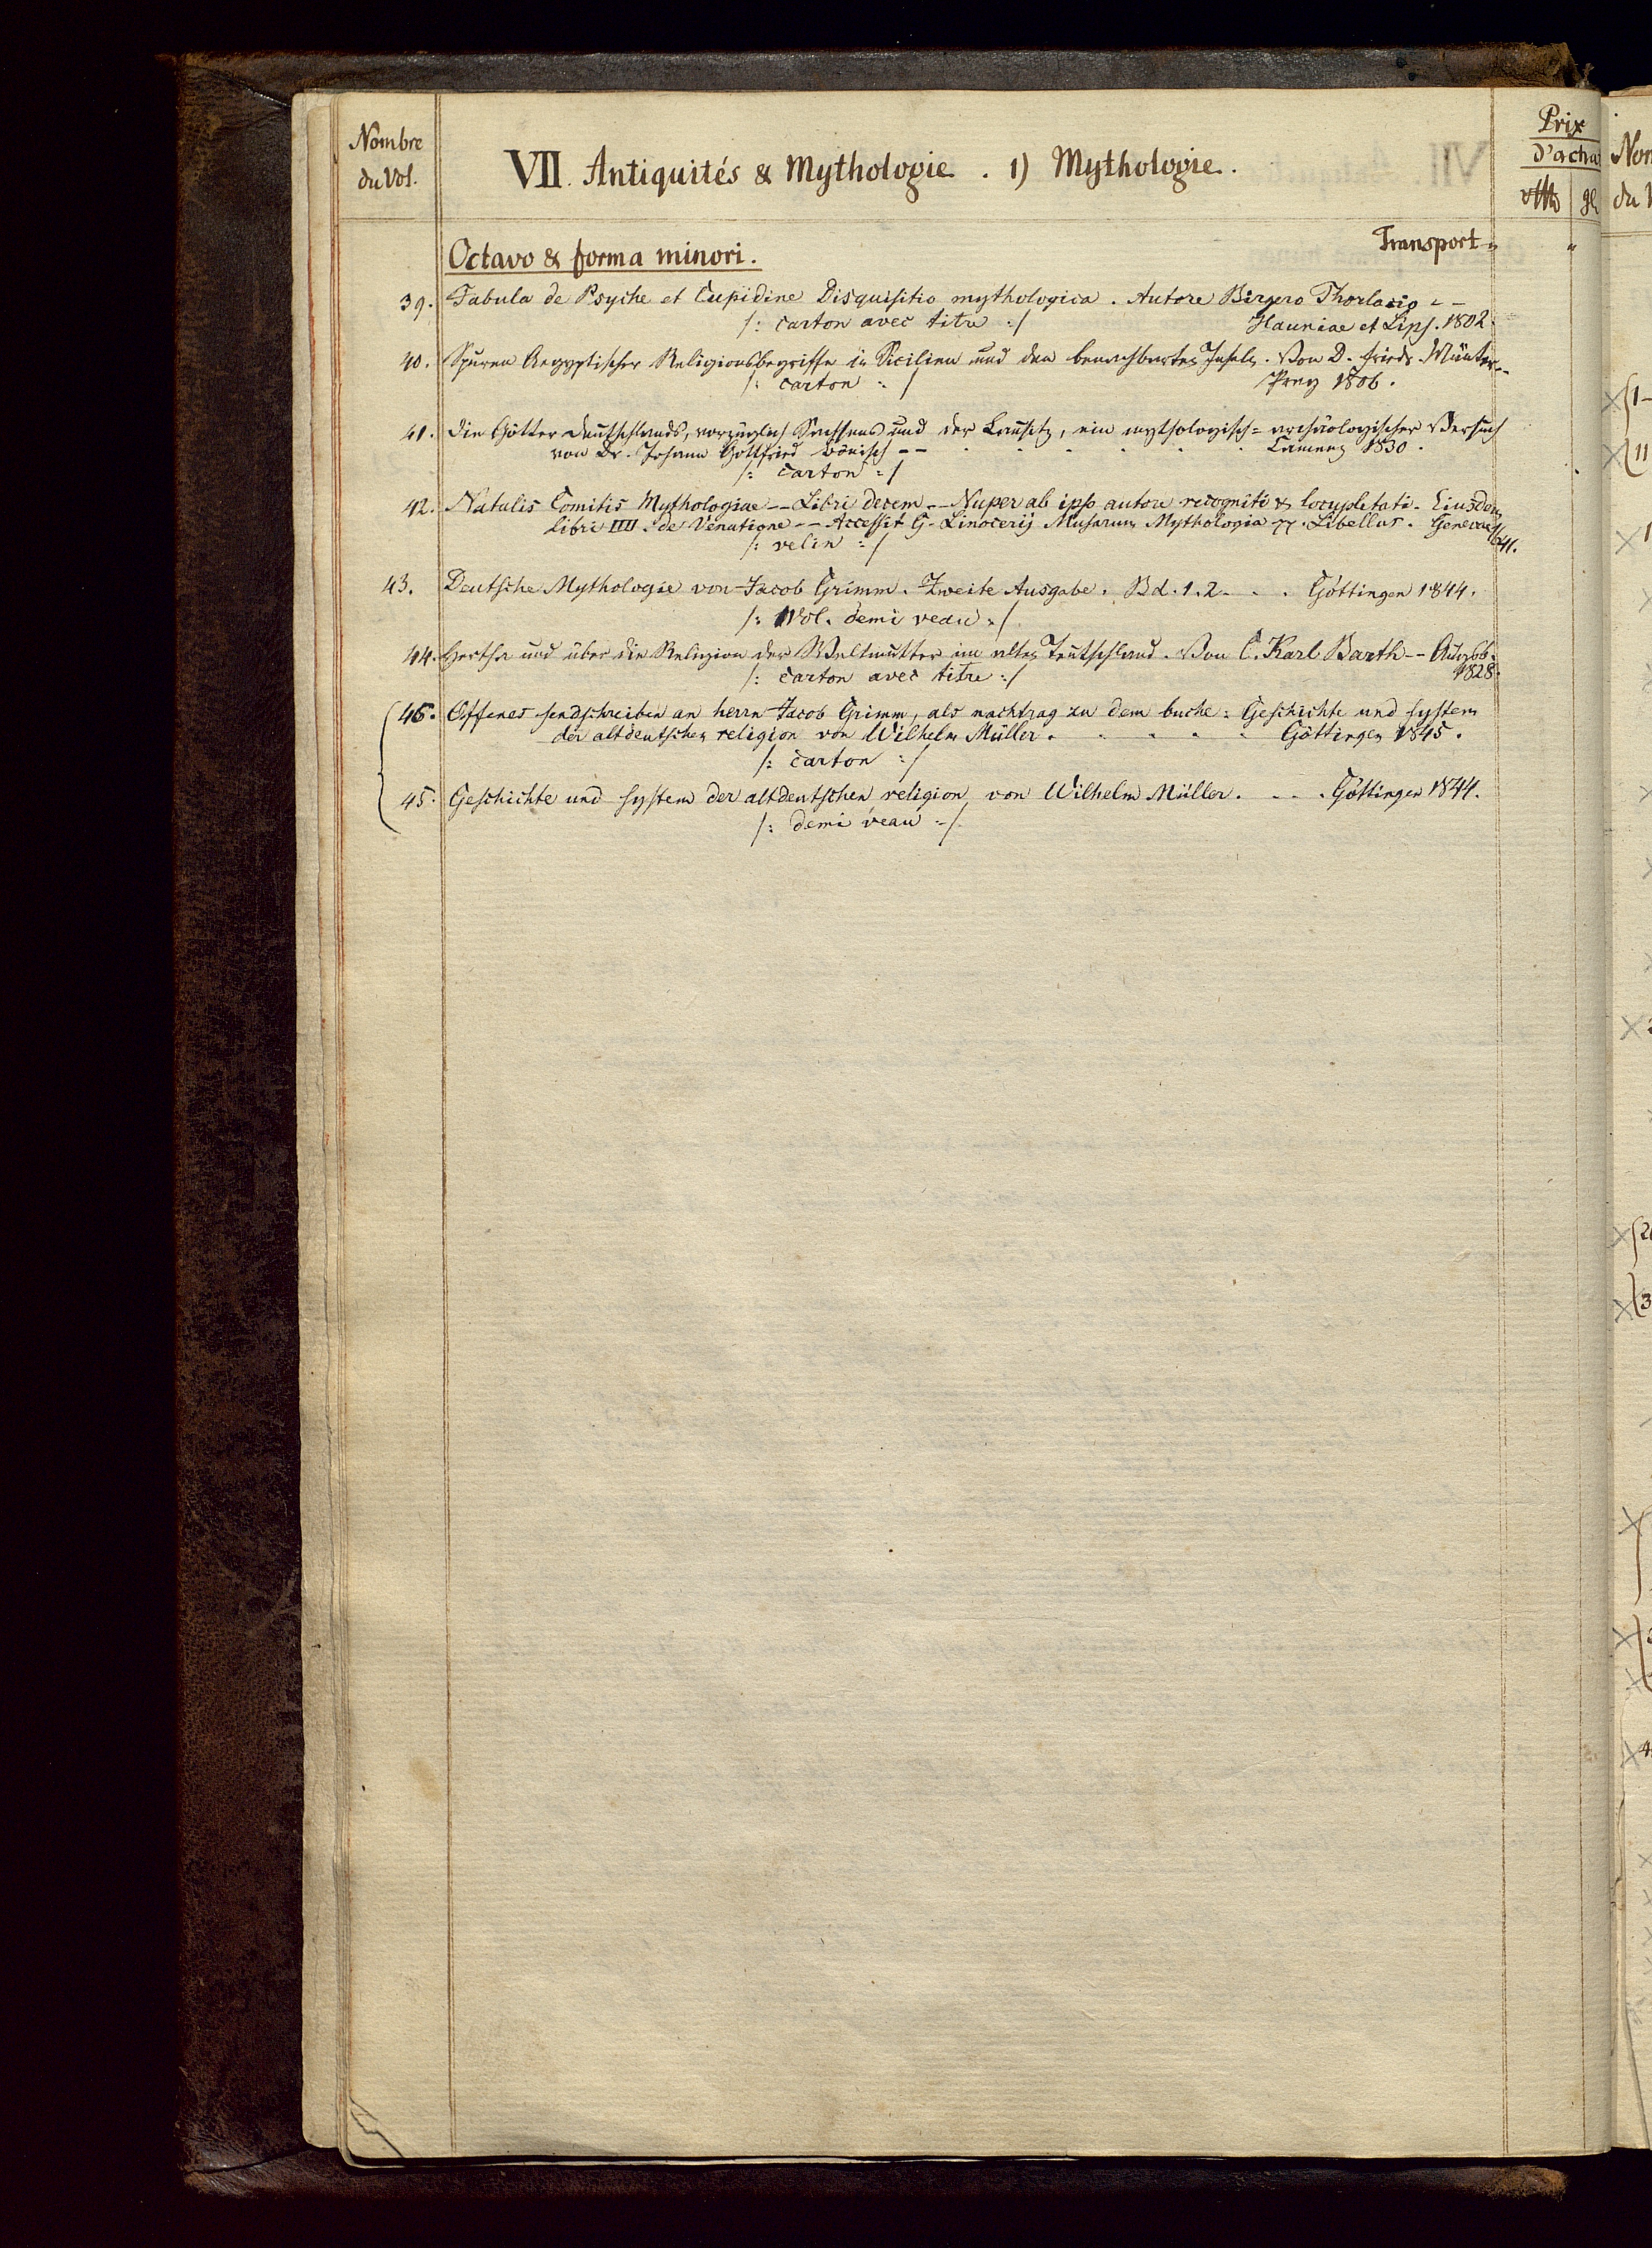 Nombre
du Vol.
VII. Antiquités & Mythologie. 1) Mythologie.
Prix
d'acha
Octavo & forma minori.
Transport "
39. Fabula de Psyche et Cupidine Disquisitio mythologica. Autore Birgero Thorlacio - -
/: carton avec titre :/ Hauniae et Lips. 1802.
40. Spuren Aegyptischer Religionsbegriffe in Sicilien und den benachbarten Inseln. Von D. Friedr. Münter - -
/: carton :/ Prag 1806.
41. Die Götter Deutschlands, vorzüglich Sachsens und der Lausitz, ein mythologisch=archäologischer Versuch
von Dr. Johann Gottfried Bönisch - - . . . . . . Camenz 1830.
/: carton :/
42. Natalis Comitis Mythologiae - - Libri decem - - Nuper ab ipso autore recogniti & locupletati. Eiusdem
libri IIII. de Venatione - - Accessit G. Linocerij Musarum Mythologia Libellus. Genevae
/: velin :/ 1641.
43. Deutsche Mythologie von Jacob Grimm. Zweite Ausgabe. Bd. 1. 2. . . . Göttingen 1844.
/: 1 Vol. demi veau :/
44. Hertha und über die Religion der Weltmutter im alten Teutschland. Von C. Karl Barth - - Augsb.
/: carton avec titre :/ 1828.
46. Offenes sendschreiben an herrn Jacob Grimm, als nachtrag zu dem buche: Geschichte und system
der altdeutschen religion von Wilhelm Müller. . . . . . Göttingen 1845.
/: carton :/
45. Geschichte und system der altdeutschen religion von Wilhelm Müller. . . . Göttingen 1844.
/: demi veau :/